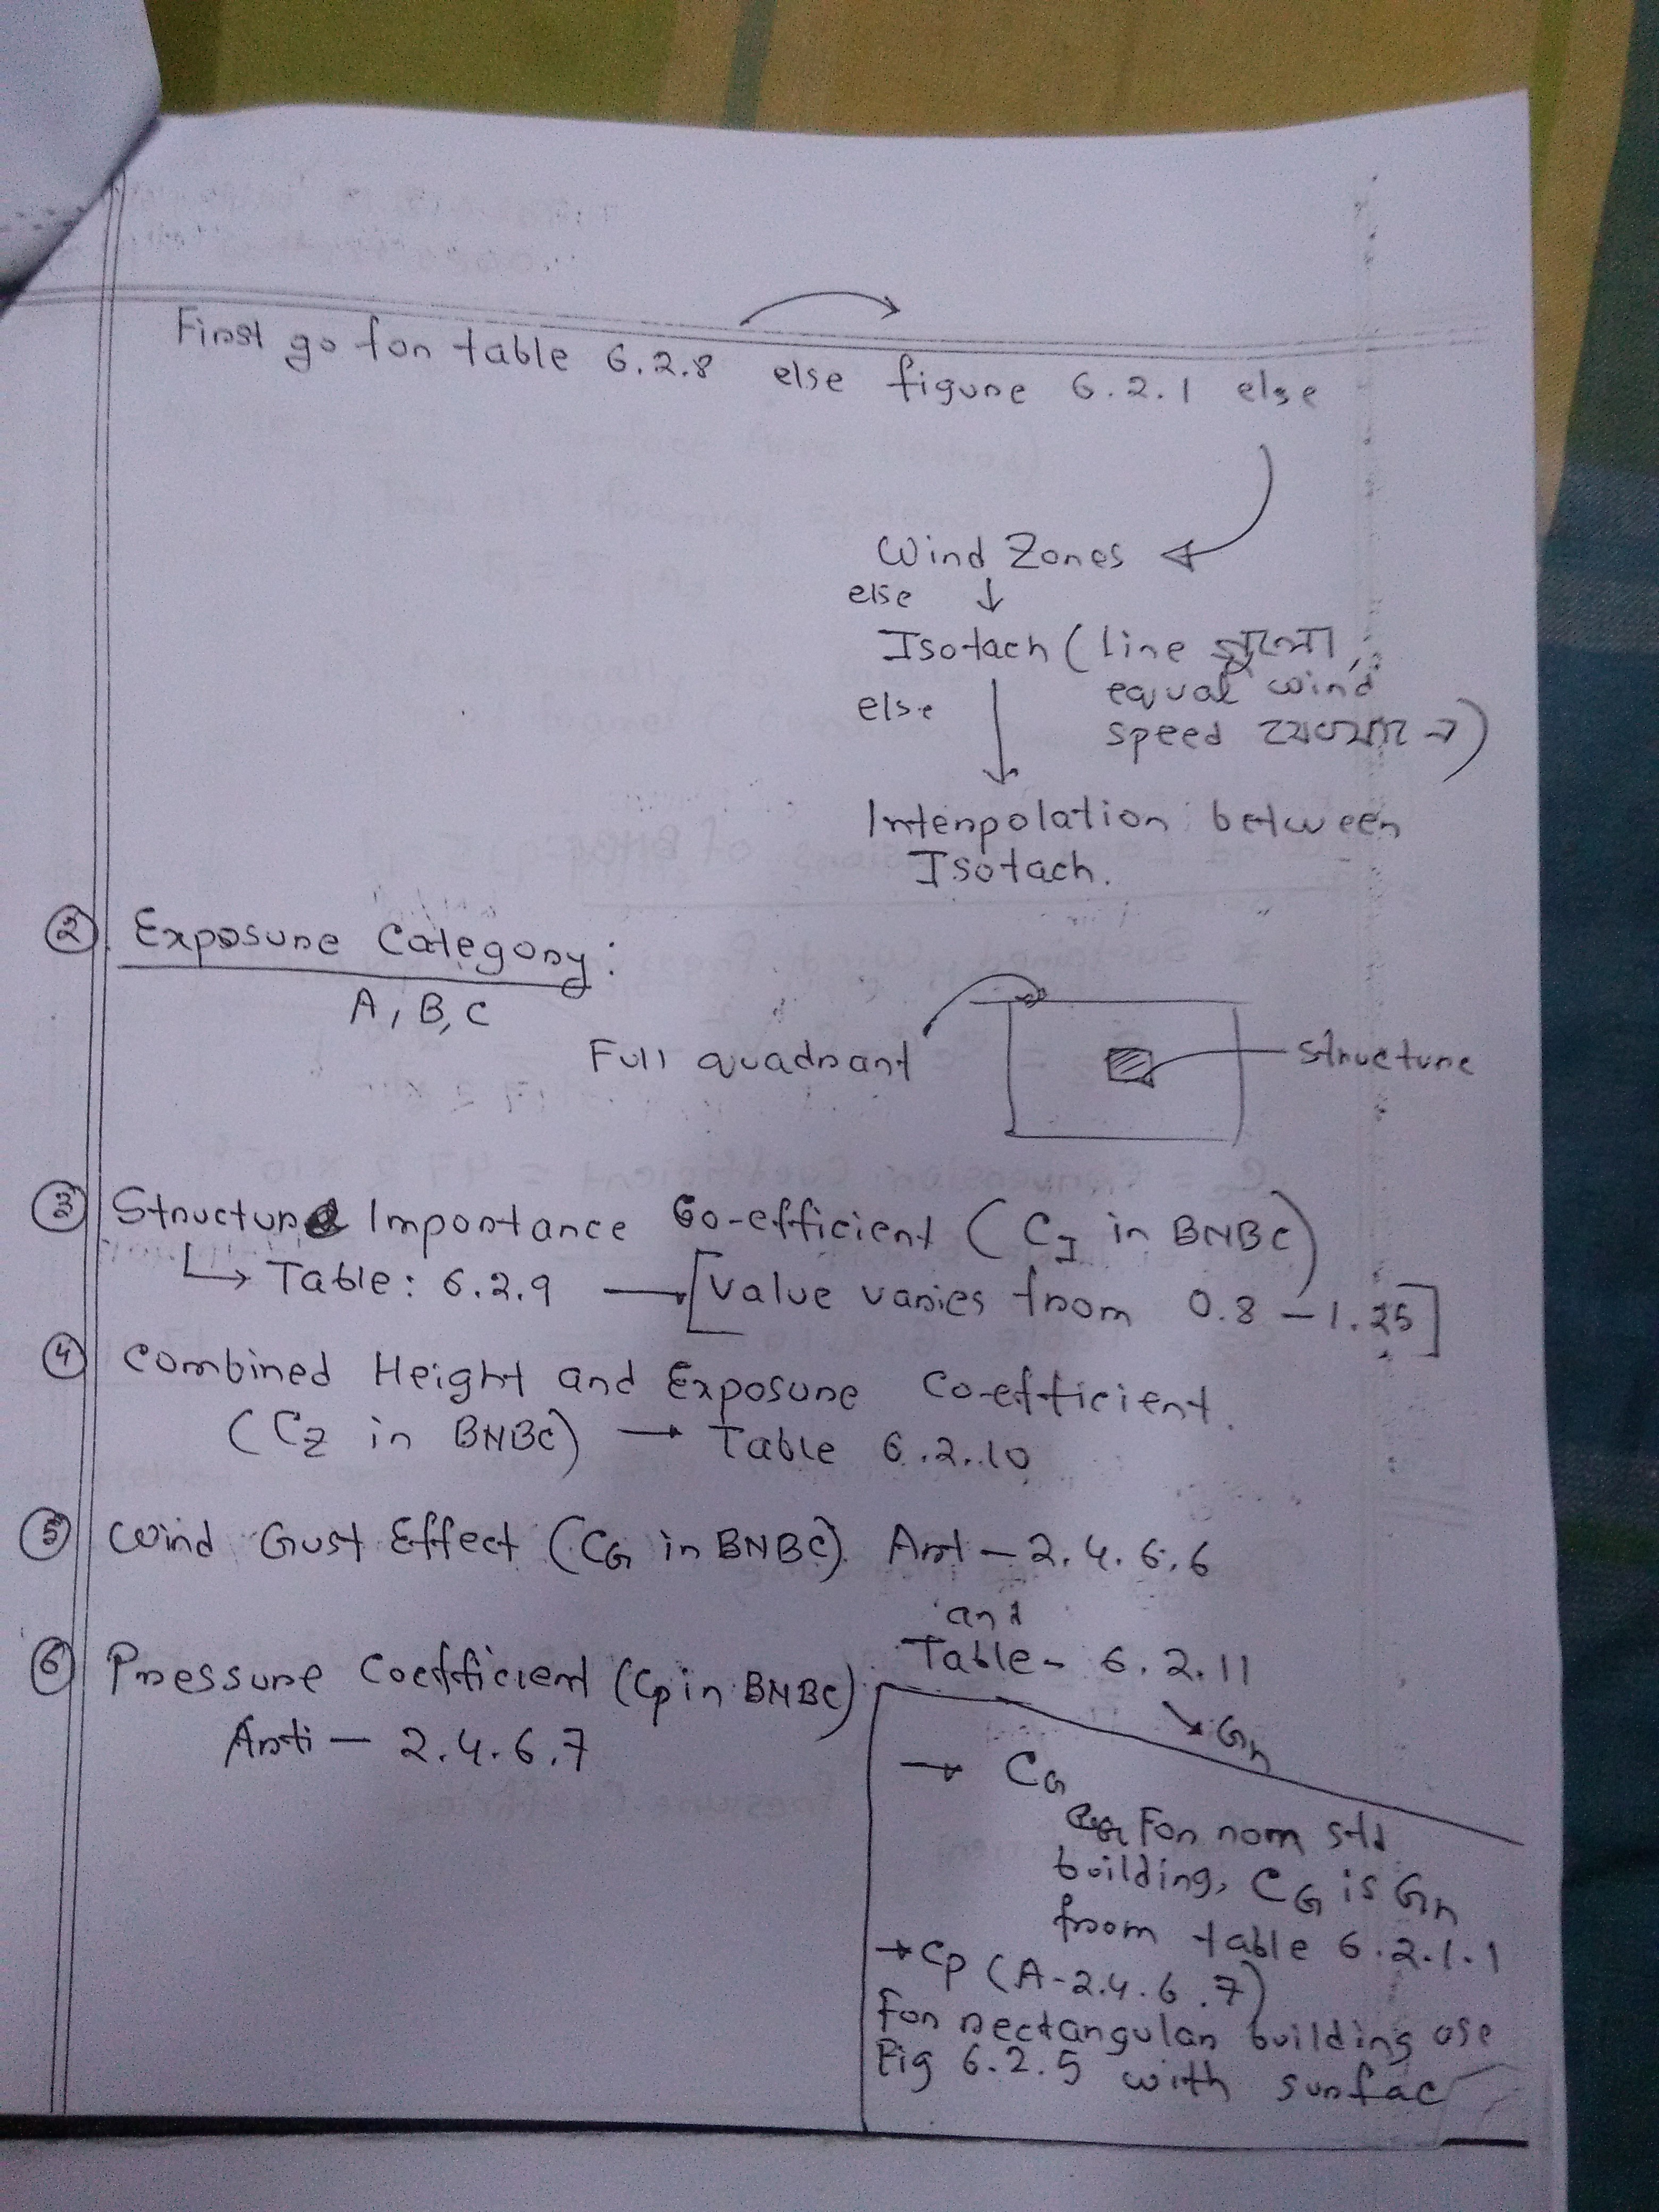 First go for table 6.2.8 else figure 6.2.1 else
Wind Zones
else
Isotach (line গুলো,
equal wind
speed
else
Interpolation between
Isotach.
② Exposure Category:
A, B, C
Full quadrant
Structure
③ Structure Importance Co-efficient (CI in BNBC)
Table: 6.2.9 → [value varies from 0.8 – 1.25]
④ Combined Height and Exposure Co-efficient.
(Cz in BNBC) → Table 6.2.10
⑤ Wind Gust Effect (CG in BNBC). Art – 2.4.6.6
and
Table- 6.2.11
Gh
⑥ Pressure Coefficient (Cp in BNBC)
Arti – 2.4.6.7
→ CG
For norm std
building, CG is Gh
from table 6.2.1.1
→ Cp (A-2.4.6.7)
For rectangular building use
Fig 6.2.5 with surfac